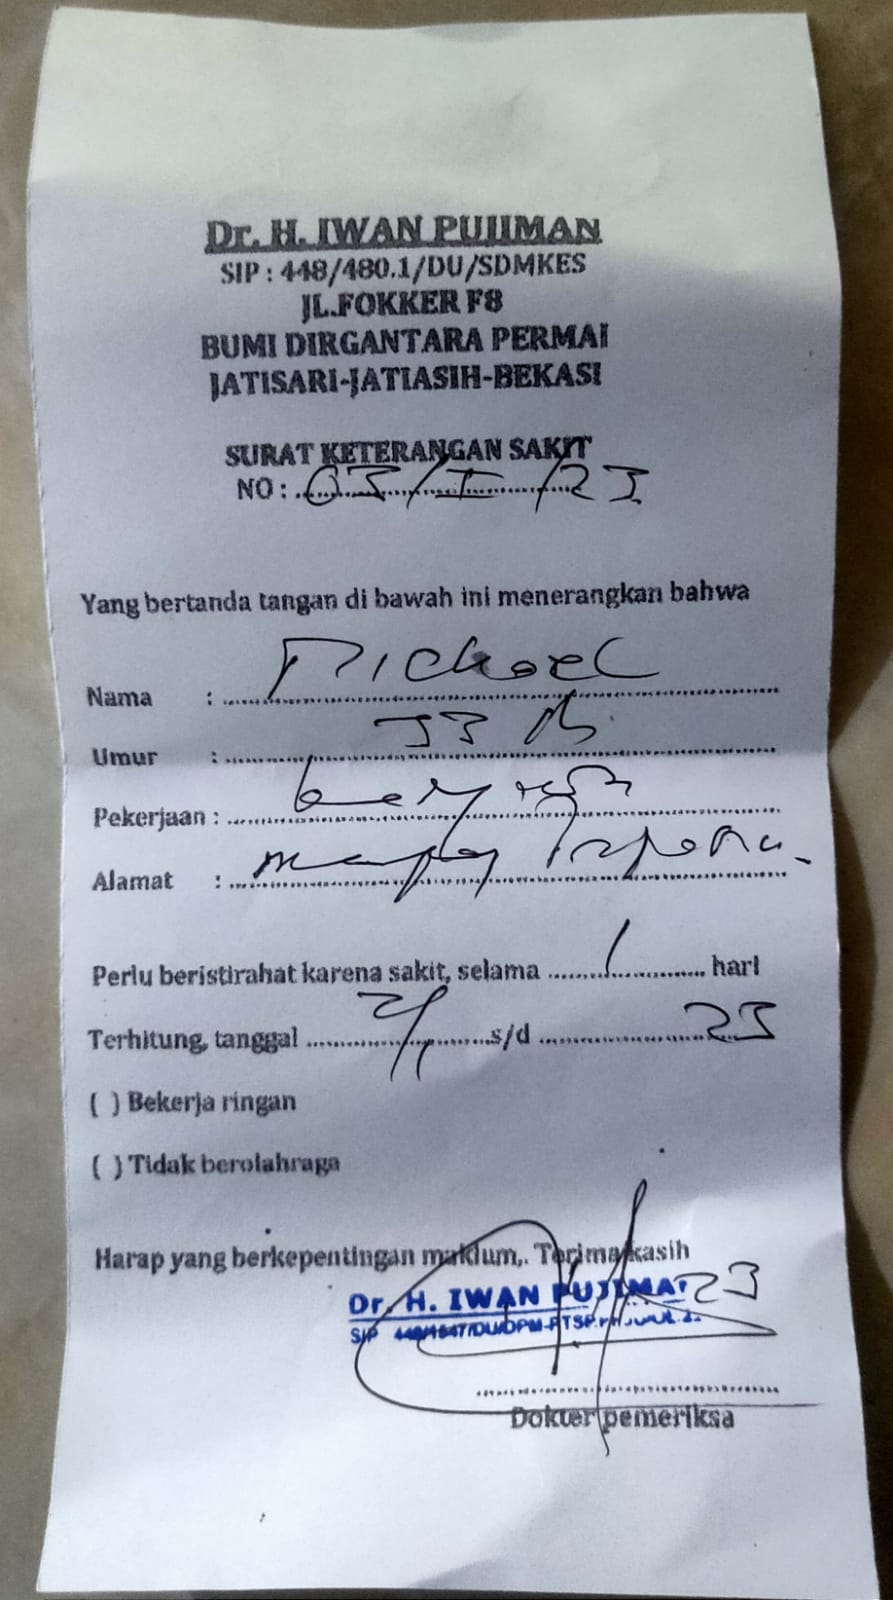 Dr. H. IWAN PUJIMAN
SIP : 448/480.1/DU/SDMKES
JL.FOKKER F8
BUMI DIRGANTARA PERMAI
JATISARI-JATIASIH-BEKASI
SURAT KETERANGAN SAKIT
NO : 03/I/23
Yang bertanda tangan di bawah ini menerangkan bahwa
Nama : Michael
Umur : 33 th
Pekerjaan :
Alamat :
Perlu beristirahat karena sakit, selama 1 hari
Terhitung, tanggal s/d 23
( ) Bekerja ringan
( ) Tidak berolahraga
Harap yang berkepentingan maklum,. Terima kasih
Dr. H. IWAN PUJIMA 23
SIP
Dokter pemeriksa